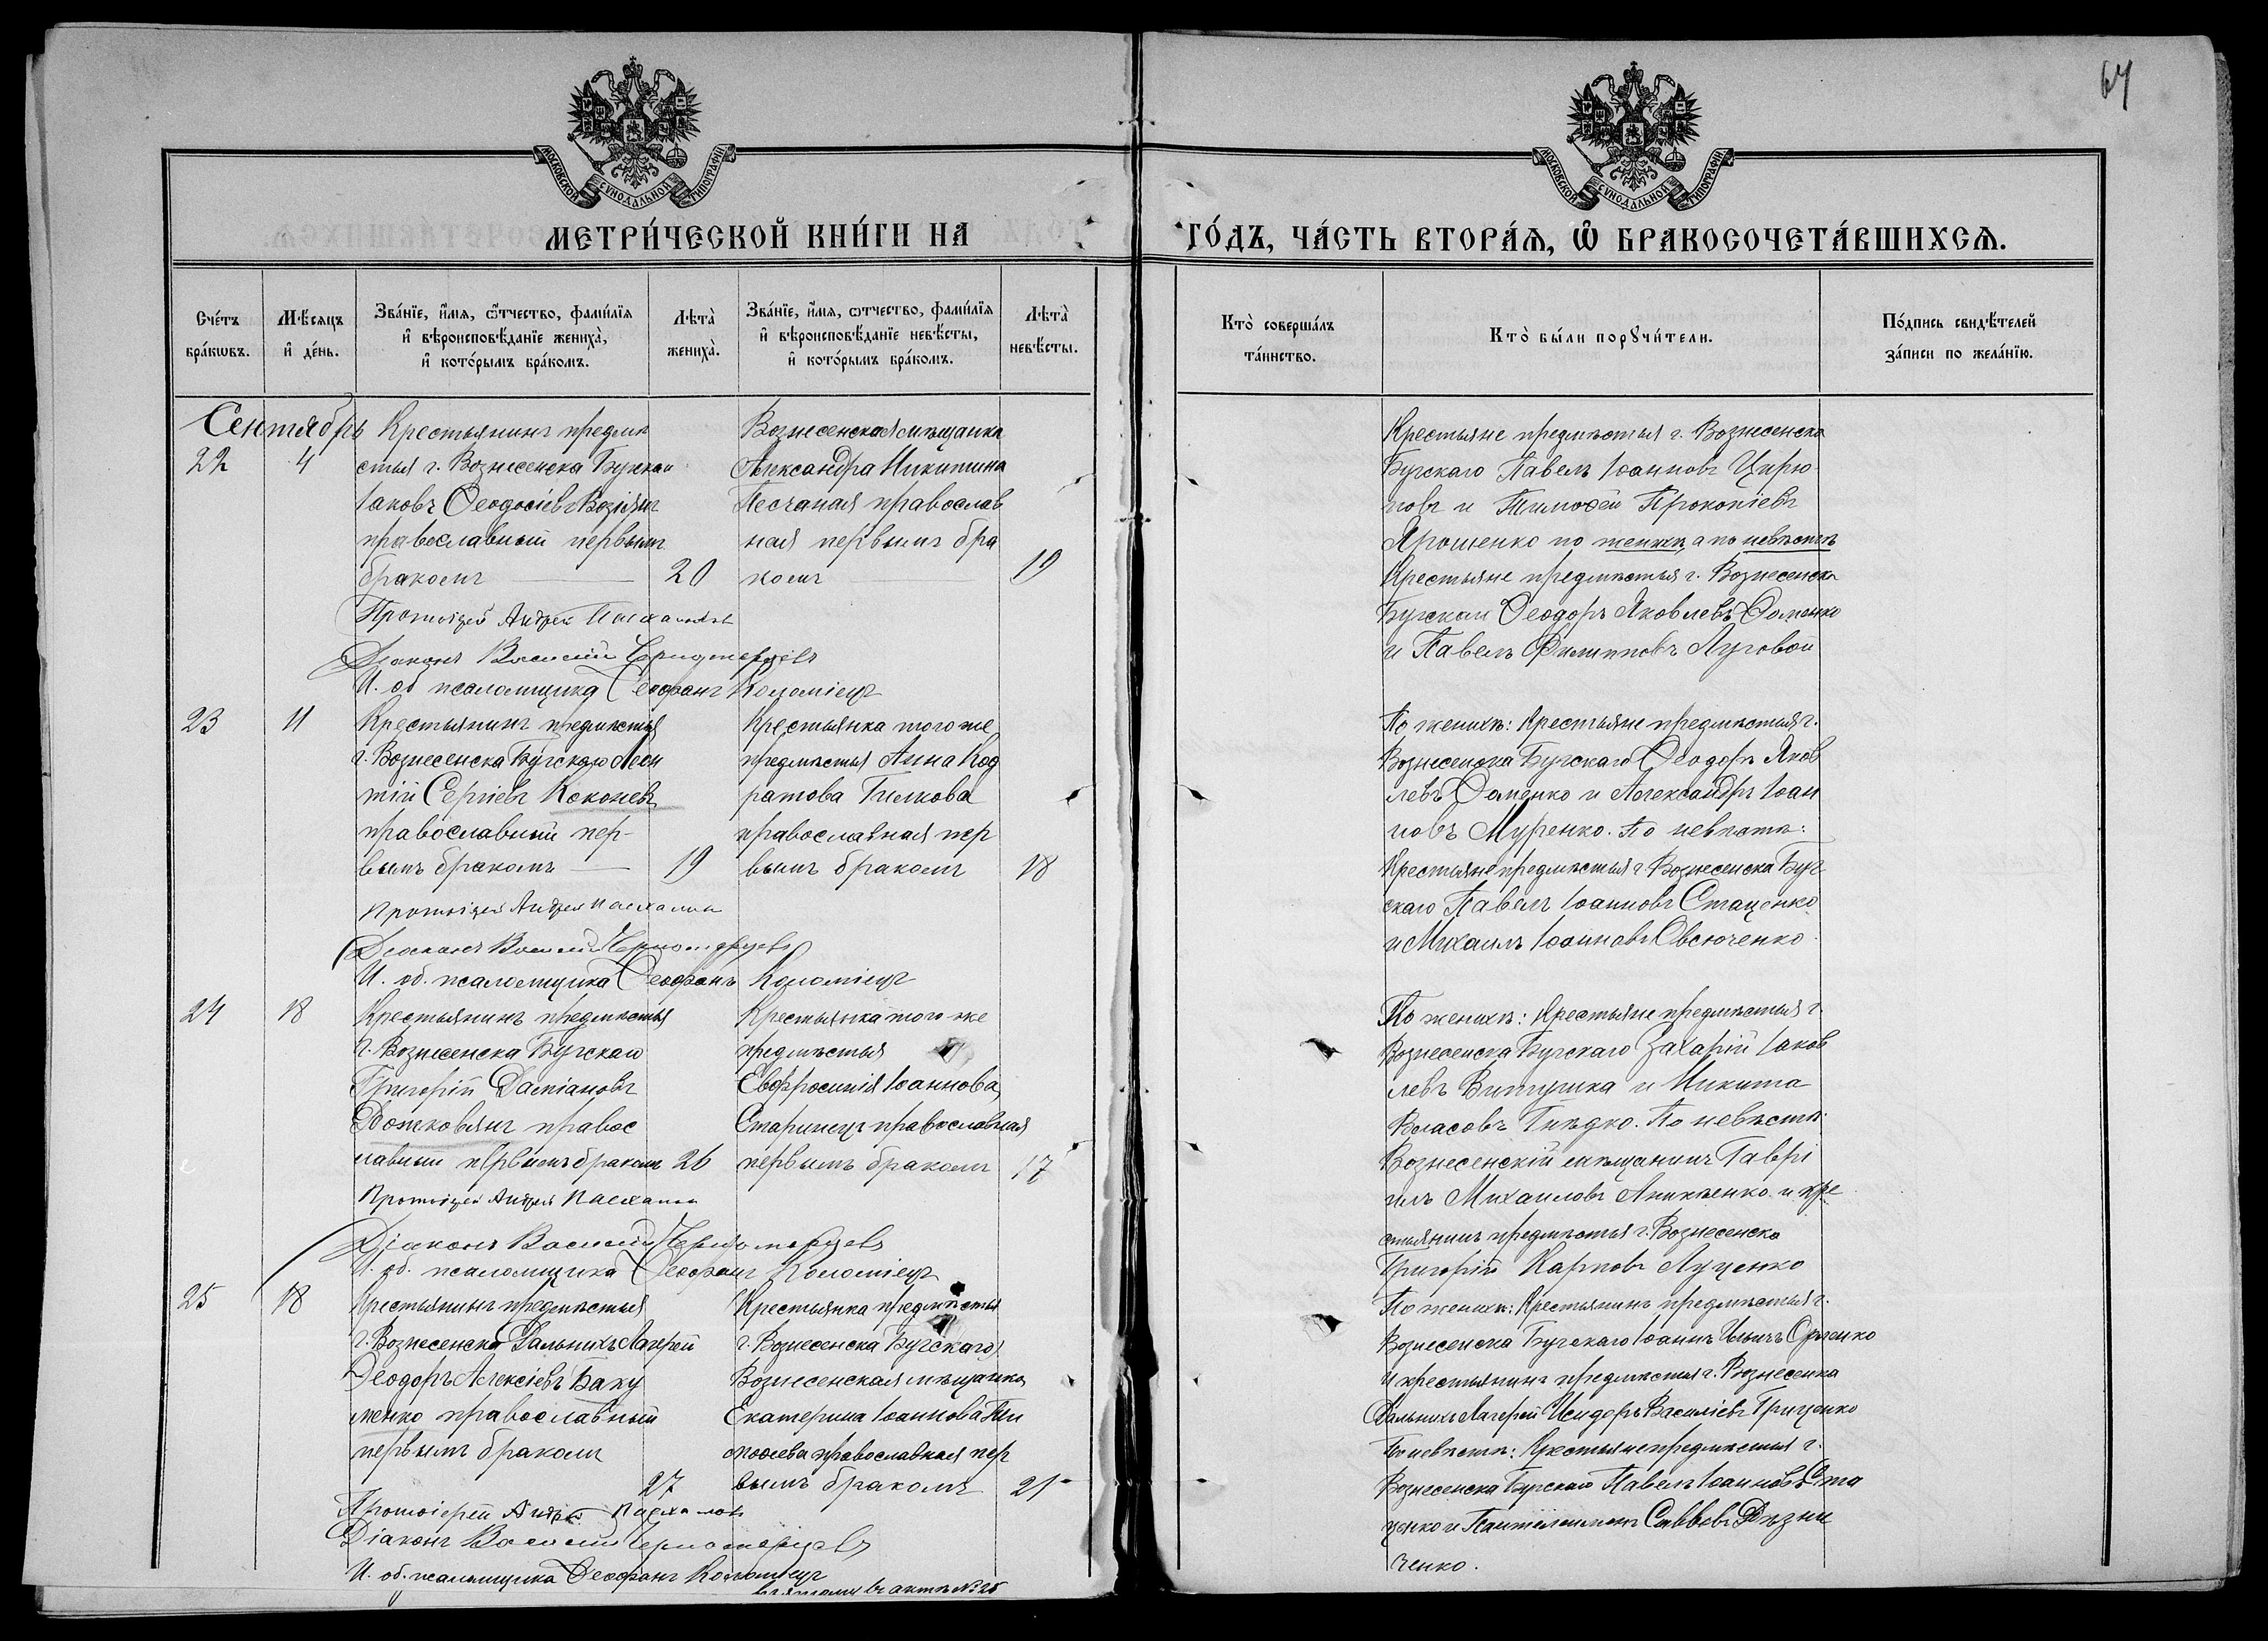 67
МОСКОВСКОЙ СѴНОДАЛЬНОЙ ТИПОГРАФІИ
МОСКОВСКОЙ СѴНОДАЛЬНОЙ ТИПОГРАФІИ
МЕТРИ́ЧЕСКОЙ КНИ́ГИ НА
ГО́ДЪ, ЧА́СТЬ ВТОРА́Ѧ, Ѽ БРАКОСОЧЕТА́ВШИХСѦ.
Сче́тъ бра́кѡвъ.
Мѣ́сяцъ и҆ де́нь.
Зва́нїе, и҆́мѧ, ѻ҆́тчество, фами́лїѧ и҆ вѣроисповѣ́данїе жениха̀, и҆ кото́рымъ бра́комъ.
Лѣта̀ жениха̀.
Зва́нїе, и҆́мѧ, ѻ҆́тчество, фами́лїѧ и҆ вѣроисповѣ́данїе невѣ́сты, и҆ кото́рымъ бра́комъ.
Лѣта̀ невѣ́сты.
Кто̀ соверша́лъ та́инство.
Кто̀ бы́ли порꙋчи́тели.
По́дпись свидѣ́телей за́писи по жела́нїю.
Сентябрь
22
4
Крестьянинъ предмѣ
стья г. Вознесенска
Іаковъ Ѳеодосіевъ
православный первымъ
бракомъ
20
Вознесенская мѣщанка
Александра Никитина
Песчаная православ
ная первымъ бра
комъ
19
Протоіерей Андрей
Діаконъ Василій Черноморцевъ
И. об псаломщика Ѳеофанъ Коломіецъ
Крестьяне предмѣстья г. Вознесенска
Бугскаго Павелъ Іоанновъ Цирю
новъ и Тимофей Прокопіевъ
Ярошенко по женихѣ, а по невѣстѣ
Крестьяне предмѣстья г. Вознесенска
Бугскаго Ѳеодоръ Яковлевъ Доменко
и Павелъ Филипповъ Луговой
23
11
Крестьянинъ предмѣстья
г. Вознесенска Бугскаго Леон
тій Сергіевъ Коконевъ
православный пер-
вымъ бракомъ
19
Крестьянка того же
предмѣстья Анна Код
ратова Гилкова
православная пер
вымъ бракомъ
18
Протоіерей Андрей
Діаконъ Василій Черноморцевъ
И. об. псаломщика Ѳеофанъ Коломіецъ
По женихѣ: Крестьяне предмѣстья г.
Вознесенска Бугскаго Ѳеодоръ Яков
левъ Доменко и Александръ Іоан
новъ Муренко. По невѣстѣ:
Крестьяне предмѣстья г. Вознесенска Буг
скаго Павелъ Іоанновъ Стаценко
и Михаилъ Іоанновъ Овсюченко.
24
18
Крестьянинъ предмѣстья
г. Вознесенска Бугскаго
Григорій Даміановъ
правос
лавный первымъ бракомъ
26
Крестьянка того же
предмѣстья
Евфросинія Іоаннова
Старинецъ православная
первымъ бракомъ
17
Протоіерей Андрей
Діаконъ Василій Черноморцевъ
И. об. псаломщика Ѳеофанъ Коломіецъ
По женихѣ: Крестьяне предмѣстья г.
Вознесенска Бугскаго Захарій Іаков
левъ и Никита
Власовъ Гнѣдко. По невѣстѣ:
Вознесенскій мѣщанинъ Гаврі
илъ Михаиловъ Аникѣенко и кре
стьянинъ предмѣстья г. Вознесенска
Григорій Карповъ Луценко
25
18
Крестьянинъ предмѣстья
г. Вознесенска Дальнихъ Лагерей
Ѳеодоръ Алексіевъ Баку
менко православный
первымъ бракомъ
27
Крестьянка предмѣстья
г. Вознесенска Бугскаго)
Вознесенская мѣщанка
Екатерина Іоаннова Ти
моѳеева православная пер
вымъ бракомъ
21
Протоіерей Андрей
Діаконъ Василій Черноморцевъ
И. об. псаломщика Ѳеофанъ Коломіецъ
въ актѣ № 25
По женихѣ: Крестьянинъ предмѣстья г.
Вознесенска Бугскаго Іоаннъ
и крестьянинъ предмѣстья г. Вознесенска
Дальнихъ Лагерей Исидоръ Василіевъ Гриценко
По невѣстѣ: Крестьяне предмѣстья г.
Вознесенска Бугскаго Павелъ Іоанновъ Ста
ценко и Пантелеимонъ Саввовъ
ченко.